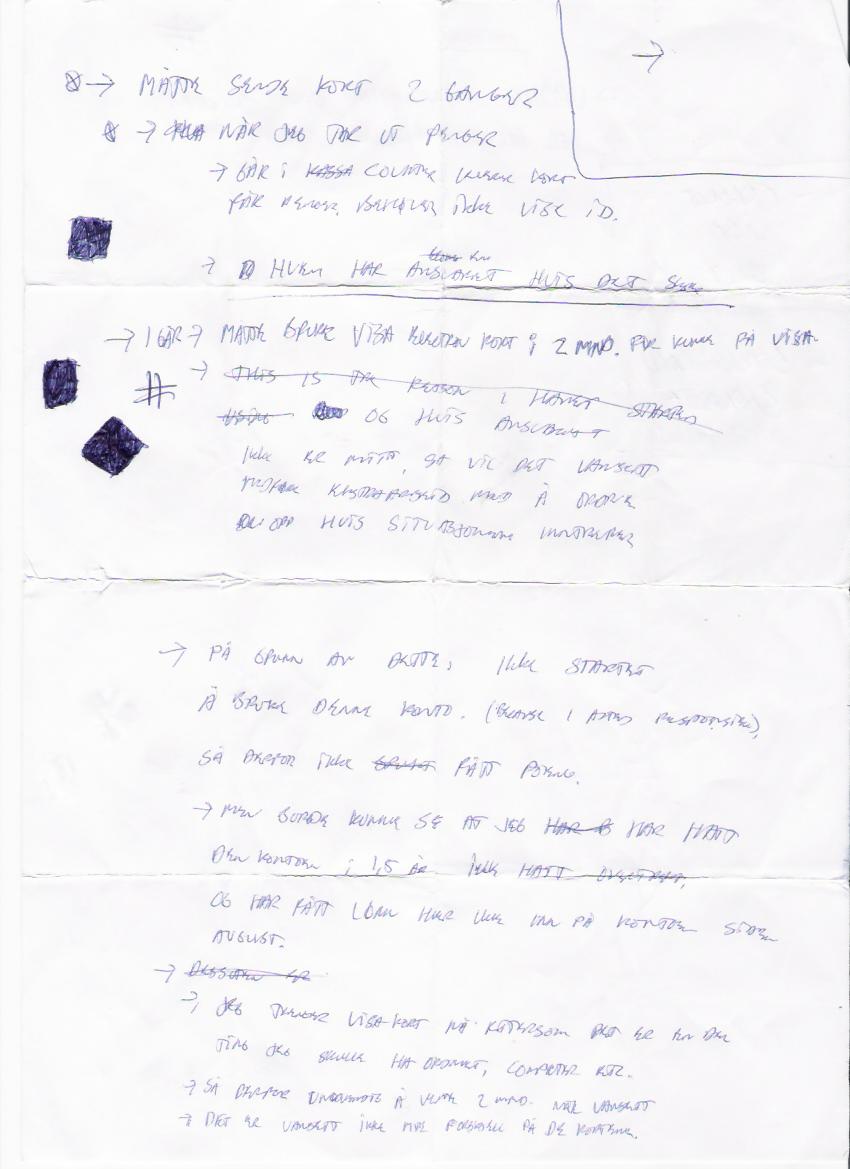 →
→ MÅTTE SENDE KORT 2 GANGER
→ NÅR JEG TAR UT PENGER
→ GÅR I KASSA COUNTER KORT
FÅR PENGER, BEHØVER IKKE VISE ID.
→ HVEM HAR ANSVARET HVIS DET SKJER
→ I GÅR → MÅTTE BRUKE VISA ELECTRON KORT I 2 MND. FØR KUNNE FÅ VISA.
→ THIS IS THE REASON I HAVENT STARTED
USING OG HVIS ANSVARET
IKKE ER MITT, SÅ VIL DET UANSETT
EKSTRAARBEID MED Å ORDNE
OPP HVIS SITUASJONEN INNTREFFER
→ PÅ GRUNN AV DETTE, IKKE STARTET
Å BRUKE DENNE KONTO. (BECAUSE I RESPONSIBLE),
SÅ DERFOR IKKE BRUKT FÅTT POENG.
→ MEN BURDE KUNNE SE AT JEG HAR HAR HATT
DEN KONTOEN I 1,5 ÅR IKKE HATT OVERTREKK,
OG HAR FÅTT LØNN HER IKKE INN PÅ KONTOEN SIDEN
AUGUST.
→ DESSUTEN ER
→ JEG TRENGER VISA-KORT NÅ ETTERSOM DET ER EN DEL
TING JEG SKULLE HA ORDNET, COMPUTER ETC.
→ SÅ DERFOR Å VENTE 2 MND. NÅR UANSETT
→ DET ER UANSETT IKKE NOE FORSKJELL PÅ DE KORTENE.